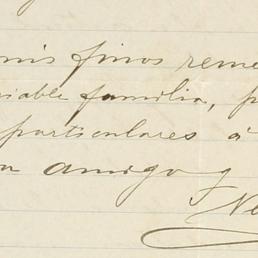 mis finos reme
iable familia, p
particulares á
amigo y
Ne